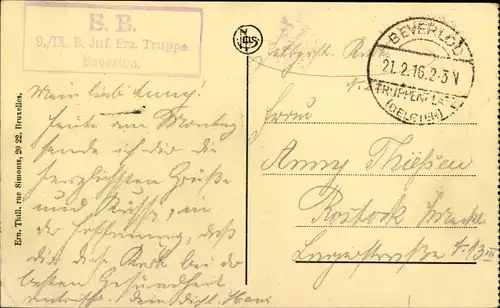 S. B.
9./IX. E. Inf. Ers. Truppe
Beverloo.
BEVERLOO
21.2.16.2-3 N
TRUPPEN
(BELGIEN)
Feldpost
Mein lieb
Heute am Montag
sende ich dir die
herzlichsten Grüße
und Küsse, in
der Hoffnung, daß
dich diese Karte bei der
besten Gesundheit
antrifft. dein dich Hans
Frau
Anny Thießen
Rostock
Lagerstraße
Ern. Thill, rue Simonis, 20 22, Bruxelles.